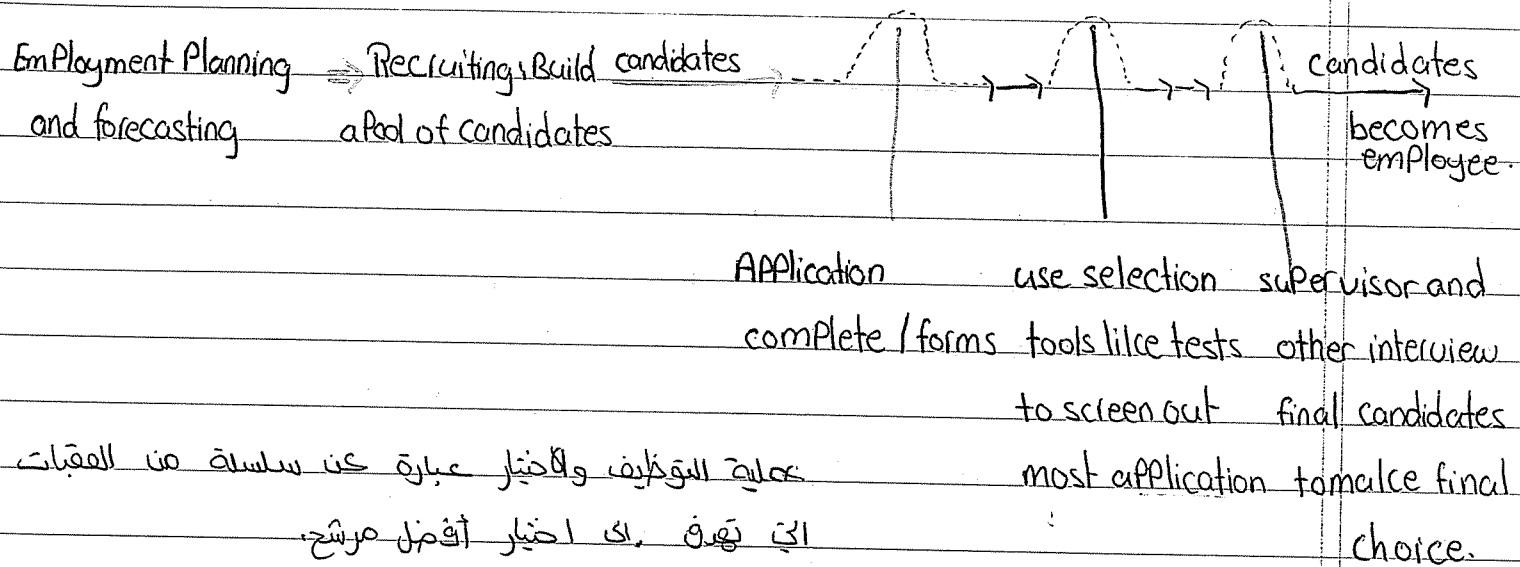 EmPloyment Planning ⇒ Recruiting, Build candidates
and forecasting a Pool of candidates
candidates
becomes
employee.
Application
complete / forms
use selection
tools like tests
to screen out
most application
supervisor and
other interview
final candidates
to make final
choice.
عملية التوظيف والاختيار عبارة عن سلسلة من العقبات
التي تهدف إلى اختيار أفضل مرشح.